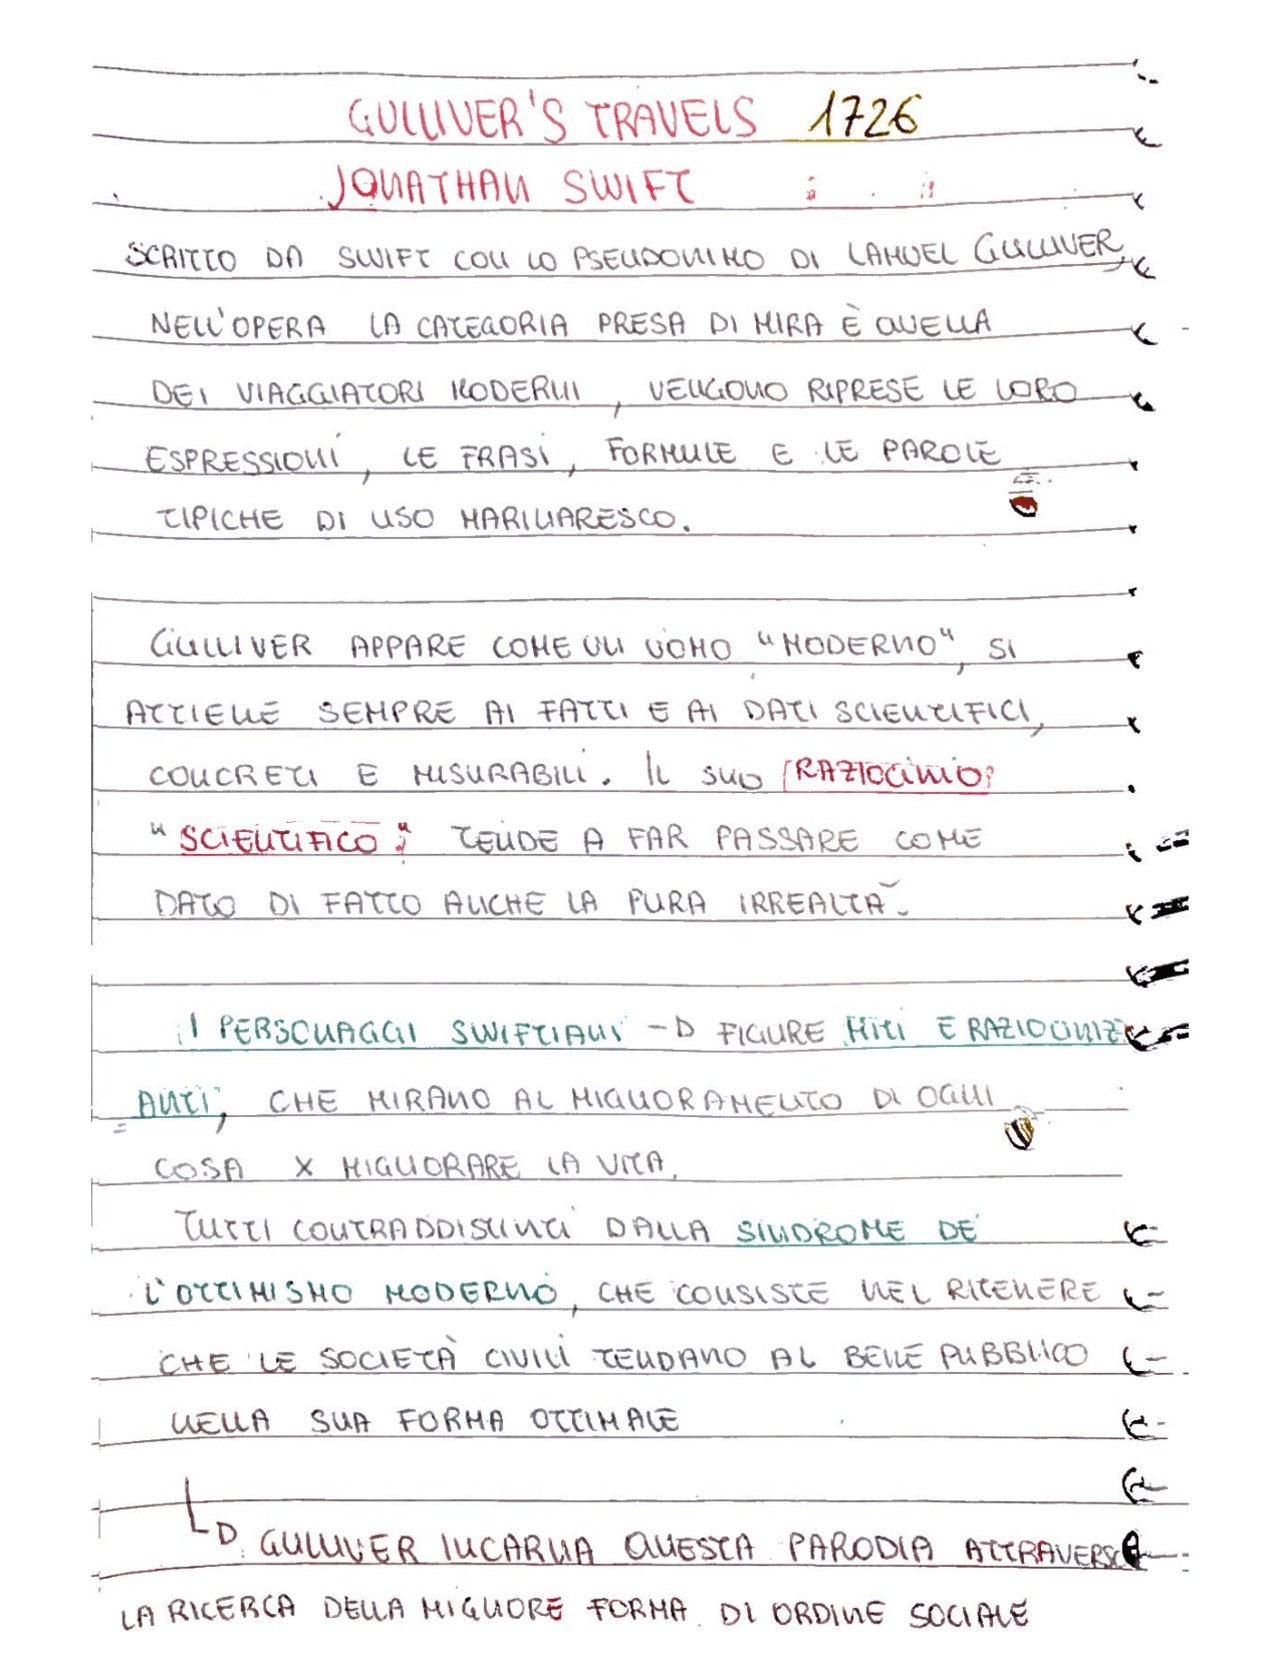 GULLIVER'S TRAVELS 1726
JONATHAN SWIFT
SCRITTO DA SWIFT CON LO PSEUDONIMO DI LAMUEL GULLIVER,
NELL'OPERA LA CATEGORIA PRESA DI MIRA È QUELLA
DEI VIAGGIATORI MODERNI, VENGONO RIPRESE LE LORO
ESPRESSIONI, LE FRASI, FORMULE E LE PAROLE
TIPICHE DI USO MARINARESCO.
GULLIVER APPARE COME UN UOMO "MODERNO", SI
ATTIENE SEMPRE AI FATTI E AI DATI SCIENTIFICI,
CONCRETI E MISURABILI. IL SUO RAZIOCINIO
"SCIENTIFICO" TENDE A FAR PASSARE COME
DATO DI FATTO ANCHE LA PURA IRREALTÀ.
I PERSONAGGI SWIFTIANI -D FIGURE MITI E RAZIOCINIZ
ANTI, CHE MIRANO AL MIGLIORAMENTO DI OGNI
COSA X MIGLIORARE LA VITA.
TUTTI CONTRADDISTINTI DALLA SINDROME DE
L'OTTIMISMO MODERNO, CHE CONSISTE NEL RITENERE
CHE LE SOCIETÀ CIVILI TENDANO AL BENE PUBBLICO
NELLA SUA FORMA OTTIMALE
GULLIVER INCARNA QUESTA PARODIA ATTRAVERSO
LA RICERCA DELLA MIGLIORE FORMA DI ORDINE SOCIALE